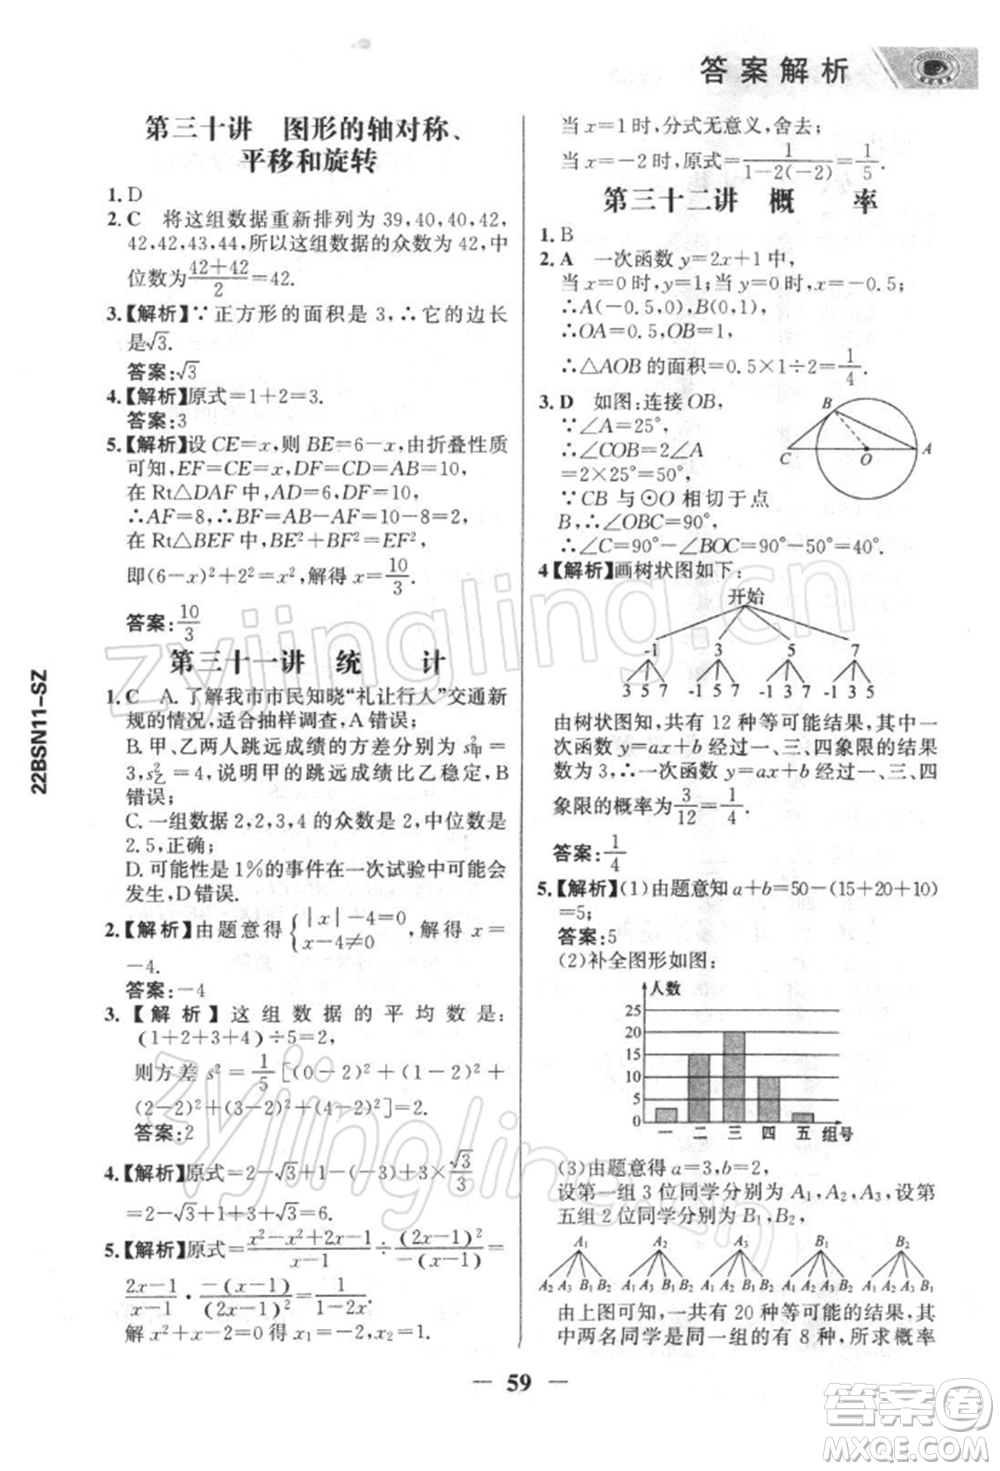 答案解析
第三十讲 图形的轴对称、
平移和旋转
1.D
2.C 将这组数据重新排列为 39,40,40,42,
42,42,43,44,所以这组数据的众数为 42,中
位数为\frac{42+42}{2}=42.
3.【解析】∵正方形的面积是 3,∴它的边长
是√3.
答案:√3
4.【解析】原式=1+2=3.
答案:3
5.【解析】设 CE=x,则 BE=6-x,由折叠性质
可知,EF=CE=x,DF=CD=AB=10,
在 Rt△DAF 中,AD=6,DF=10,
∴AF=8,∴BF=AB-AF=10-8=2,
在 Rt△BEF 中,BE²+BF²=EF²,
即(6-x)²+2²=x²,解得 x=\frac{10}{3}.
答案:\frac{10}{3}
第三十一讲 统 计
1.C A.了解我市市民知晓“礼让行人”交通新
规的情况,适合抽样调查,A 错误;
B.甲、乙两人跳远成绩的方差分别为 s²甲=
3,s²乙=4,说明甲的跳远成绩比乙稳定,B
错误;
C.一组数据 2,2,3,4 的众数是 2,中位数是
2.5,正确;
D.可能性是 1%的事件在一次试验中可能会
发生,D 错误.
2.【解析】由题意得{|x|-4=0 x-4≠0,解得 x=
-4.
答案:-4
3.【解析】这组数据的平均数是:
(1+2+3+4)÷5=2,
则方差 s²=\frac{1}{5}[(0-2)²+(1-2)²+
(2-2)²+(3-2)²+(4-2)²]=2.
答案:2
4.【解析】原式=2-√3+1-(-3)+3×\frac{√3}{3}
=2-√3+1+3+√3=6.
5.【解析】原式=\frac{x²-x²+2x-1}{x-1}÷\frac{(2x-1)²}{-(x-1)}=
\frac{2x-1}{x-1}·\frac{-(x-1)}{(2x-1)²}=\frac{1}{1-2x},
解 x²+x-2=0 得 x₁=-2,x₂=1.
当 x=1 时,分式无意义,舍去;
当 x=-2 时,原式=\frac{1}{1-2(-2)}=\frac{1}{5}.
第三十二讲 概 率
1.B
2.A 一次函数 y=2x+1 中,
当 x=0 时,y=1;当 y=0 时,x=-0.5;
∴A(-0.5,0),B(0,1),
∴OA=0.5,OB=1;
∴△AOB 的面积=0.5×1÷2=\frac{1}{4}.
3.D 如图:连接 OB,
∵∠A=25°,
∴∠COB=2∠A
=2×25°=50°,
∵CB 与⊙O 相切于点
B,∴∠OBC=90°,
∴∠C=90°-∠BOC=90°-50°=40°.
B
C O A
4【解析】画树状图如下:
开始
-1 3 5 7
3 5 7 -1 5 7 -1 3 7 -1 3 5
由树状图知,共有 12 种等可能结果,其中一
次函数 y=ax+b 经过一、三、四象限的结果
数为 3,∴一次函数 y=ax+b 经过一、三、四
象限的概率为\frac{3}{12}=\frac{1}{4}.
答案:\frac{1}{4}
5.【解析】(1)由题意知 a+b=50-(15+20+10)
=5;
答案:5
(2)补全图形如图:
人数
25
20
15
10
5
0
一 二 三 四 五 组号
(3)由题意得 a=3,b=2,
设第一组 3 位同学分别为 A₁,A₂,A₃,设第
五组 2 位同学分别为 B₁,B₂,
A₁ A₂ A₃ B₁ B₂
A₂ A₃ B₁ B₂ A₁ A₃ B₁ B₂ A₁ A₂ B₁ B₂ A₁ A₂ A₃ B₂ A₁ A₂ A₃ B₁
由上图可知,一共有 20 种等可能的结果,其
中两名同学是同一组的有 8 种,所求概率
22BSN11-SZ
— 59 —
zyjingling.cn
zyjingling.cn
答案圈
MXQE.COM